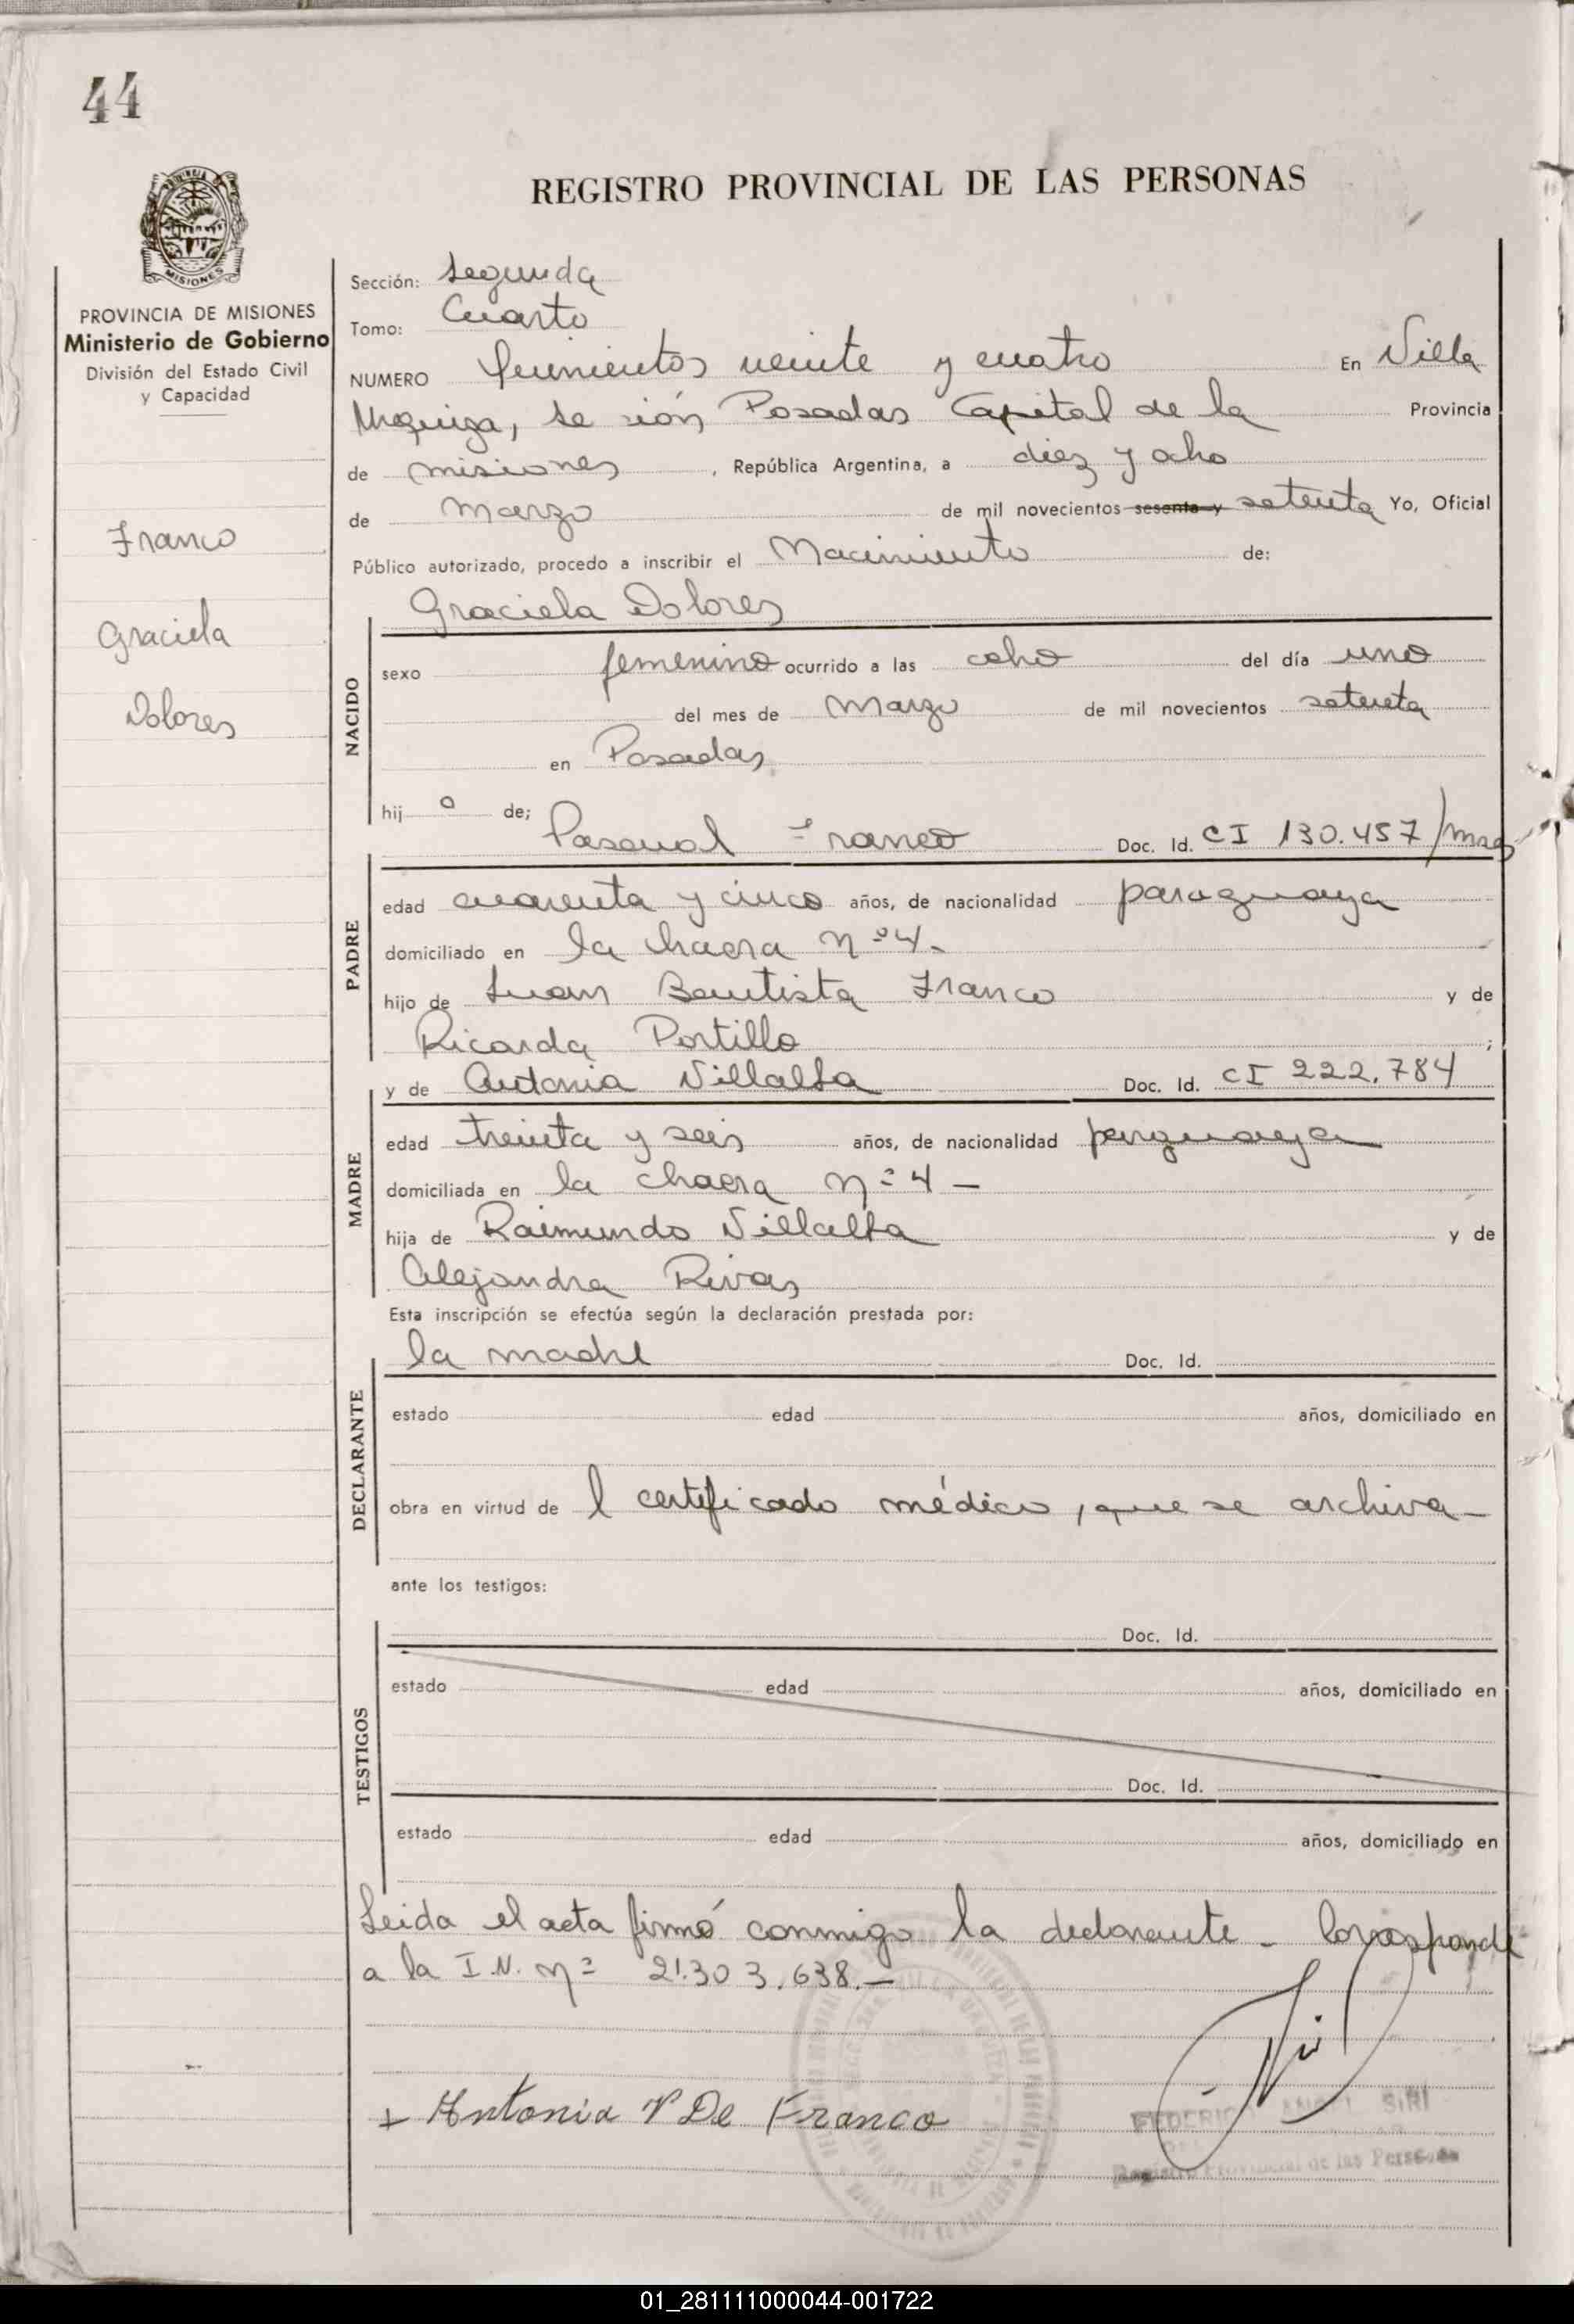 44
REGISTRO PROVINCIAL DE LAS PERSONAS
MISIONES
PROVINCIA DE MISIONES
Ministerio de Gobierno
División del Estado Civil
y Capacidad
Franco
Graciela
Dolores
Sección: Segunda
Tomo: Cuarto
NUMERO Quinientos veinte y cuatro En Villa
Urquiza, se sión Posadas Capital de la Provincia
de misiones, República Argentina, a diez y ocho
de Marzo de mil novecientos sesenta y setenta Yo, Oficial
Público autorizado, procedo a inscribir el Nacimiento de:
Graciela Dolores
NACIDO
sexo femenino ocurrido a las ocho del día uno
del mes de Marzo de mil novecientos setenta
en Posadas
hij a de; Pascual Franco Doc. Id. CI 130.457/Mnes
PADRE
edad cuarenta y cinco años, de nacionalidad paraguaya
domiciliado en la chacra nº 4.
hijo de Juan Bautista Franco y de
Ricarda Portillo ;
y de Antonia Villalba Doc. Id. CI 222.784
MADRE
edad treinta y seis años, de nacionalidad paraguaya
domiciliada en la chacra nº 4 -
hija de Raimundo Villalba y de
Alejandra Rivas
Esta inscripción se efectúa según la declaración prestada por:
la madre Doc. Id.
DECLARANTE
estado edad años, domiciliado en
obra en virtud de l certificado médico, que se archiva -
ante los testigos:
Doc. Id.
TESTIGOS
estado edad años, domiciliado en
Doc. Id.
estado edad años, domiciliado en
Leida el acta firmó conmigo la declarante - Corresponde
a la I.N. nº 21.303.638.-
+ Antonia V De Franco
FEDERICO ANGEL SIRI
Registro Provincial de las Personas
01_281111000044-001722